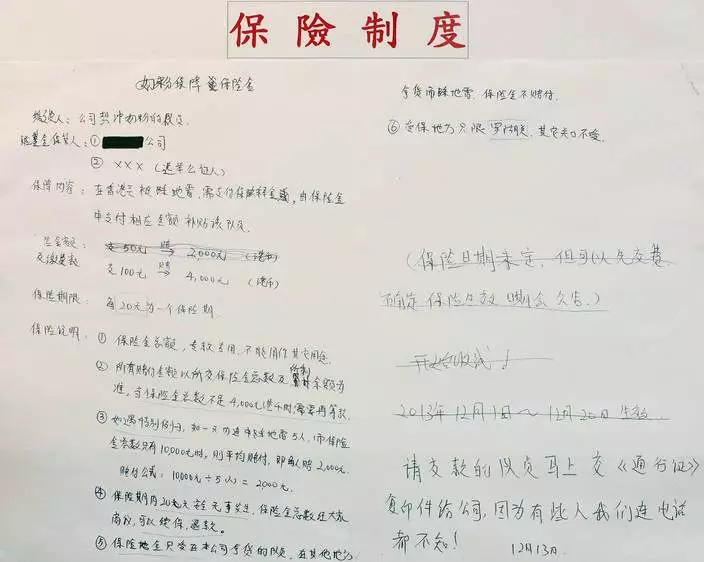 保險制度
奶粉保障 保险金
投资人：公司帮冲奶粉的队员
基金保管人：① 公司
② XXX（选举公证人）
保障内容：在香港 被踩地雷，需支付保释金 ，由保险金
中支付相应金额补贴该队员
金额
交缴款数：
交50元 赔→ 2,000元（港币）
交100元 赔→ 4,000元（港币）
保险期限：每20天为一个保险期
保险说明：① 保险金总额，专款专用，不能用作其它用途
② 所有赔付金额以所交保险金总数及 余额为
准，当保险金总数不足4,000元港币时，需要再筹款
③ 如遇特别例子，如一天内连中踩地雷5人，而保险
金总数只有10,000元时，则平均赔付，即每人赔2,000元
赔付公式：10000元÷5人＝2000元
④ 保险期内20天 安全无事发生，保险金总数经大家
商议，可以续保，退款。
⑤ 保险 金只受在本公司拿货的队员，在其他地方
拿货而踩地雷，保险金不赔付
⑥ 受保地方只限罗湖关，其它关口不受
（保险日期未定，但可以先交费
确定保险生效日期会公告。）
开始收试！
2013年12月1日～12月20日生效
请交款的队员马上交《通行证》
复印件给公司，因为有些人我们连电话
都不知！ 12月13日